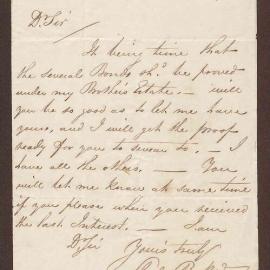 Dr Sir
It being time that
the several Bonds shd. be proved
under my Brother's Estate. — will
you be so good as to let me have
yours, and I will get the proof
ready for you to swear to. — I
have all the others. — You
will let me know at same time
if you please when you received
the last Interest. — I am
Dr Sir
Yours truly